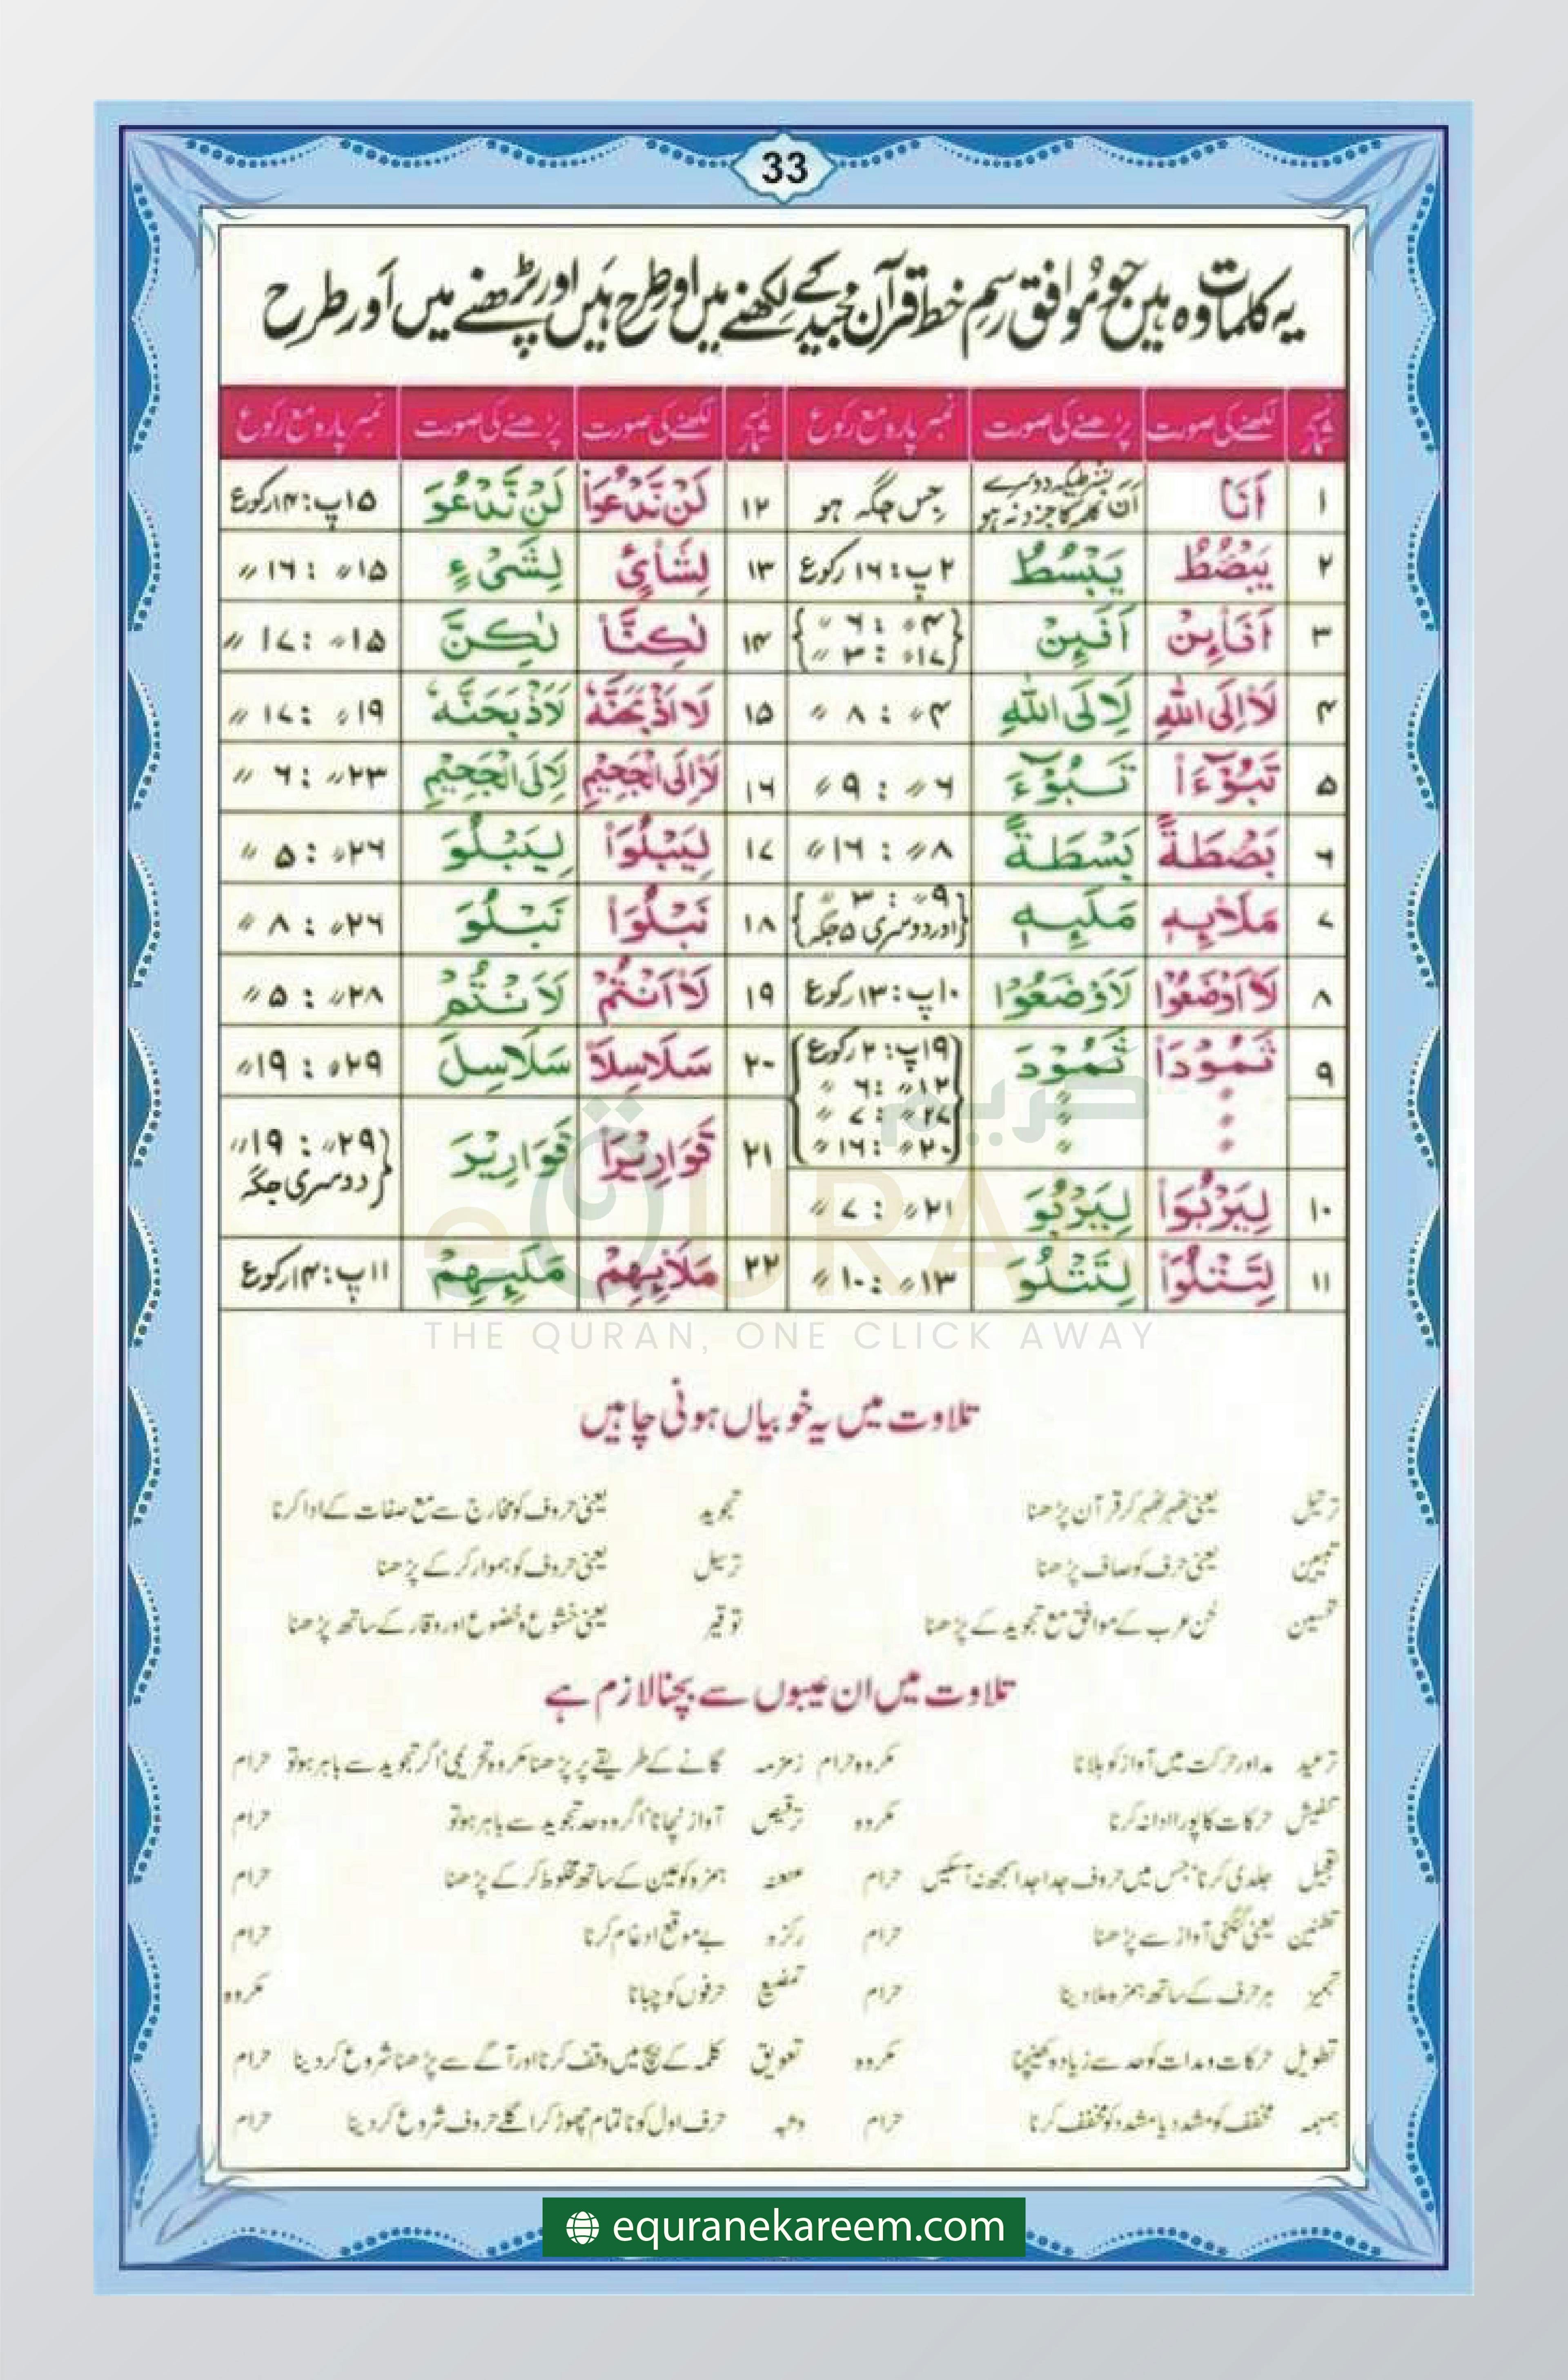 33
یہ کلمات وہ ہیں جو مُوافق رسمِ خط قرآن مجید کے لکھنے میں اور طرح ہیں اور پڑھنے میں اَور طرح
نمبر شمار لکھنے کی صورت پڑھنے کی صورت نمبر پارہ مع رکوع نمبر شمار لکھنے کی صورت پڑھنے کی صورت نمبر پارہ مع رکوع
۱ اَنَا اَنَ بشرطیکہ دوسرے کلمہ کا جزو نہ ہو جس جگہ ہو ۱۲ لَنْ نَّدْعُوَا۟ لَنْ نَّدْعُوَ ۱۵پ: ۱۴رکوع
۲ يَبْصُۜطُ يَبْسُطُ ۲ پ: ۱۶ رکوع ۱۳ لِشَا۟یْءٍ لِشَیْءٍ ۱۵〃 : ۱۶〃
۳ اَفَا۟ئِنْ اَفَئِنْ ۴〃 : ۶〃 ۱۷〃 : ۳〃 ۱۴ لٰكِنَّا۟ لٰكِنَّ ۱۵〃 : ۱۷〃
۴ لَا۟اِلَى اللّٰهِ لَاِلَى اللّٰهِ ۴〃 : ۸〃 ۱۵ لَا۟اَذْبَحَنَّهٗ لَاَذْبَحَنَّهٗ ۱۹〃 : ۱۷〃
۵ تَبُوْٓءَا۟ تَبُوْٓءَ ۶〃 : ۹〃 ۱۶ لَا۟اِلَى الْجَحِيْمِ لَاِلَى الْجَحِيْمِ ۲۳〃 : ۶〃
۶ بَصْۜطَةً بَسْطَةً ۸〃 : ۱۶〃 ۱۷ لِيَبْلُوَا۟ لِيَبْلُوَ ۲۶〃 : ۵〃
۷ مَلَا۟ئِهٖ مَلَئِهٖ ۹〃 : ۳〃 اور دوسری ۵ جگہ ۱۸ نَبْلُوَا۟ نَبْلُوَ ۲۶〃 : ۸〃
۸ لَا۟اَوْضَعُوْا لَاَوْضَعُوْا ۱۰پ: ۱۳رکوع ۱۹ لَا۟اَنْتُمْ لَاَنْتُمْ ۲۸〃 : ۵〃
۹ ثَمُوْدَا۟ ثَمُوْدَ ۱۹پ: ۲ رکوع ۲۰ سَلَاسِلَا۟ سَلَاسِلَ ۲۹〃 : ۱۹〃
〃 〃 ۱۲〃 : ۶〃
〃 〃 ۲۷〃 : ۷〃 ۲۱ قَوَارِيْرَا۟ قَوَارِيْرَ ۲۹〃 : ۱۹〃 دوسری جگہ
〃 〃 ۲۰〃 : ۱۶〃
۱۰ لِيَرْبُوَا۟ لِيَرْبُوَ ۲۱〃 : ۷〃
۱۱ لِتَتْلُوَا۟ لِتَتْلُوَ ۱۳〃 : ۱۰〃 ۲۲ مَلَا۟ئِهِمْ مَلَئِهِمْ ۱۱پ: ۱۴رکوع
كريم
eQURAN
THE QURAN, ONE CLICK AWAY
تلاوت میں یہ خوبیاں ہونی چاہیں
ترتیل یعنی ٹھہر ٹھہر کر قرآن پڑھنا تجوید یعنی حروف کو مخارج سے مع صفات کے ادا کرنا
تبیین یعنی حرف کو صاف پڑھنا ترسیل یعنی حروف کو ہموار کر کے پڑھنا
تحسین لحن عرب کے موافق مع تجوید کے پڑھنا توقیر یعنی خشوع و خضوع اور وقار کے ساتھ پڑھنا
تلاوت میں ان عیبوں سے بچنا لازم ہے
ترعید مد اور حرکت میں آواز کو ہلانا مکروہ حرام زمزمہ گانے کے طریقے پر پڑھنا مکروہ تحریمی اگر تجوید سے باہر ہو تو حرام
تنفیش حرکات کا پورا ادا نہ کرنا مکروہ ترقیص آواز نچانا اگر وہ حد تجوید سے باہر ہو تو حرام
تعجیل جلدی کرنا جس میں حروف جدا جدا سمجھ نہ آسکیں حرام عنعنہ ہمزہ کو عین کے ساتھ مخلوط کر کے پڑھنا حرام
تطنین یعنی گنگنی آواز سے پڑھنا حرام رکزہ بے موقع ادغام کرنا حرام
تہمیز ہر حرف کے ساتھ ہمزہ ملا دینا حرام تمضیغ حرفوں کو چبانا مکروہ
تطویل حرکات و مدات کو حد سے زیادہ کھینچنا مکروہ تعویق کلمہ کے بیچ میں وقف کرنا اور آگے سے پڑھنا شروع کر دینا حرام
ہمہمہ مخفف کو مشدد یا مشدد کو مخفف کرنا حرام وثبہ حرف اول کو ناتمام چھوڑ کر اگلے حروف شروع کر دینا حرام
equranekareem.com